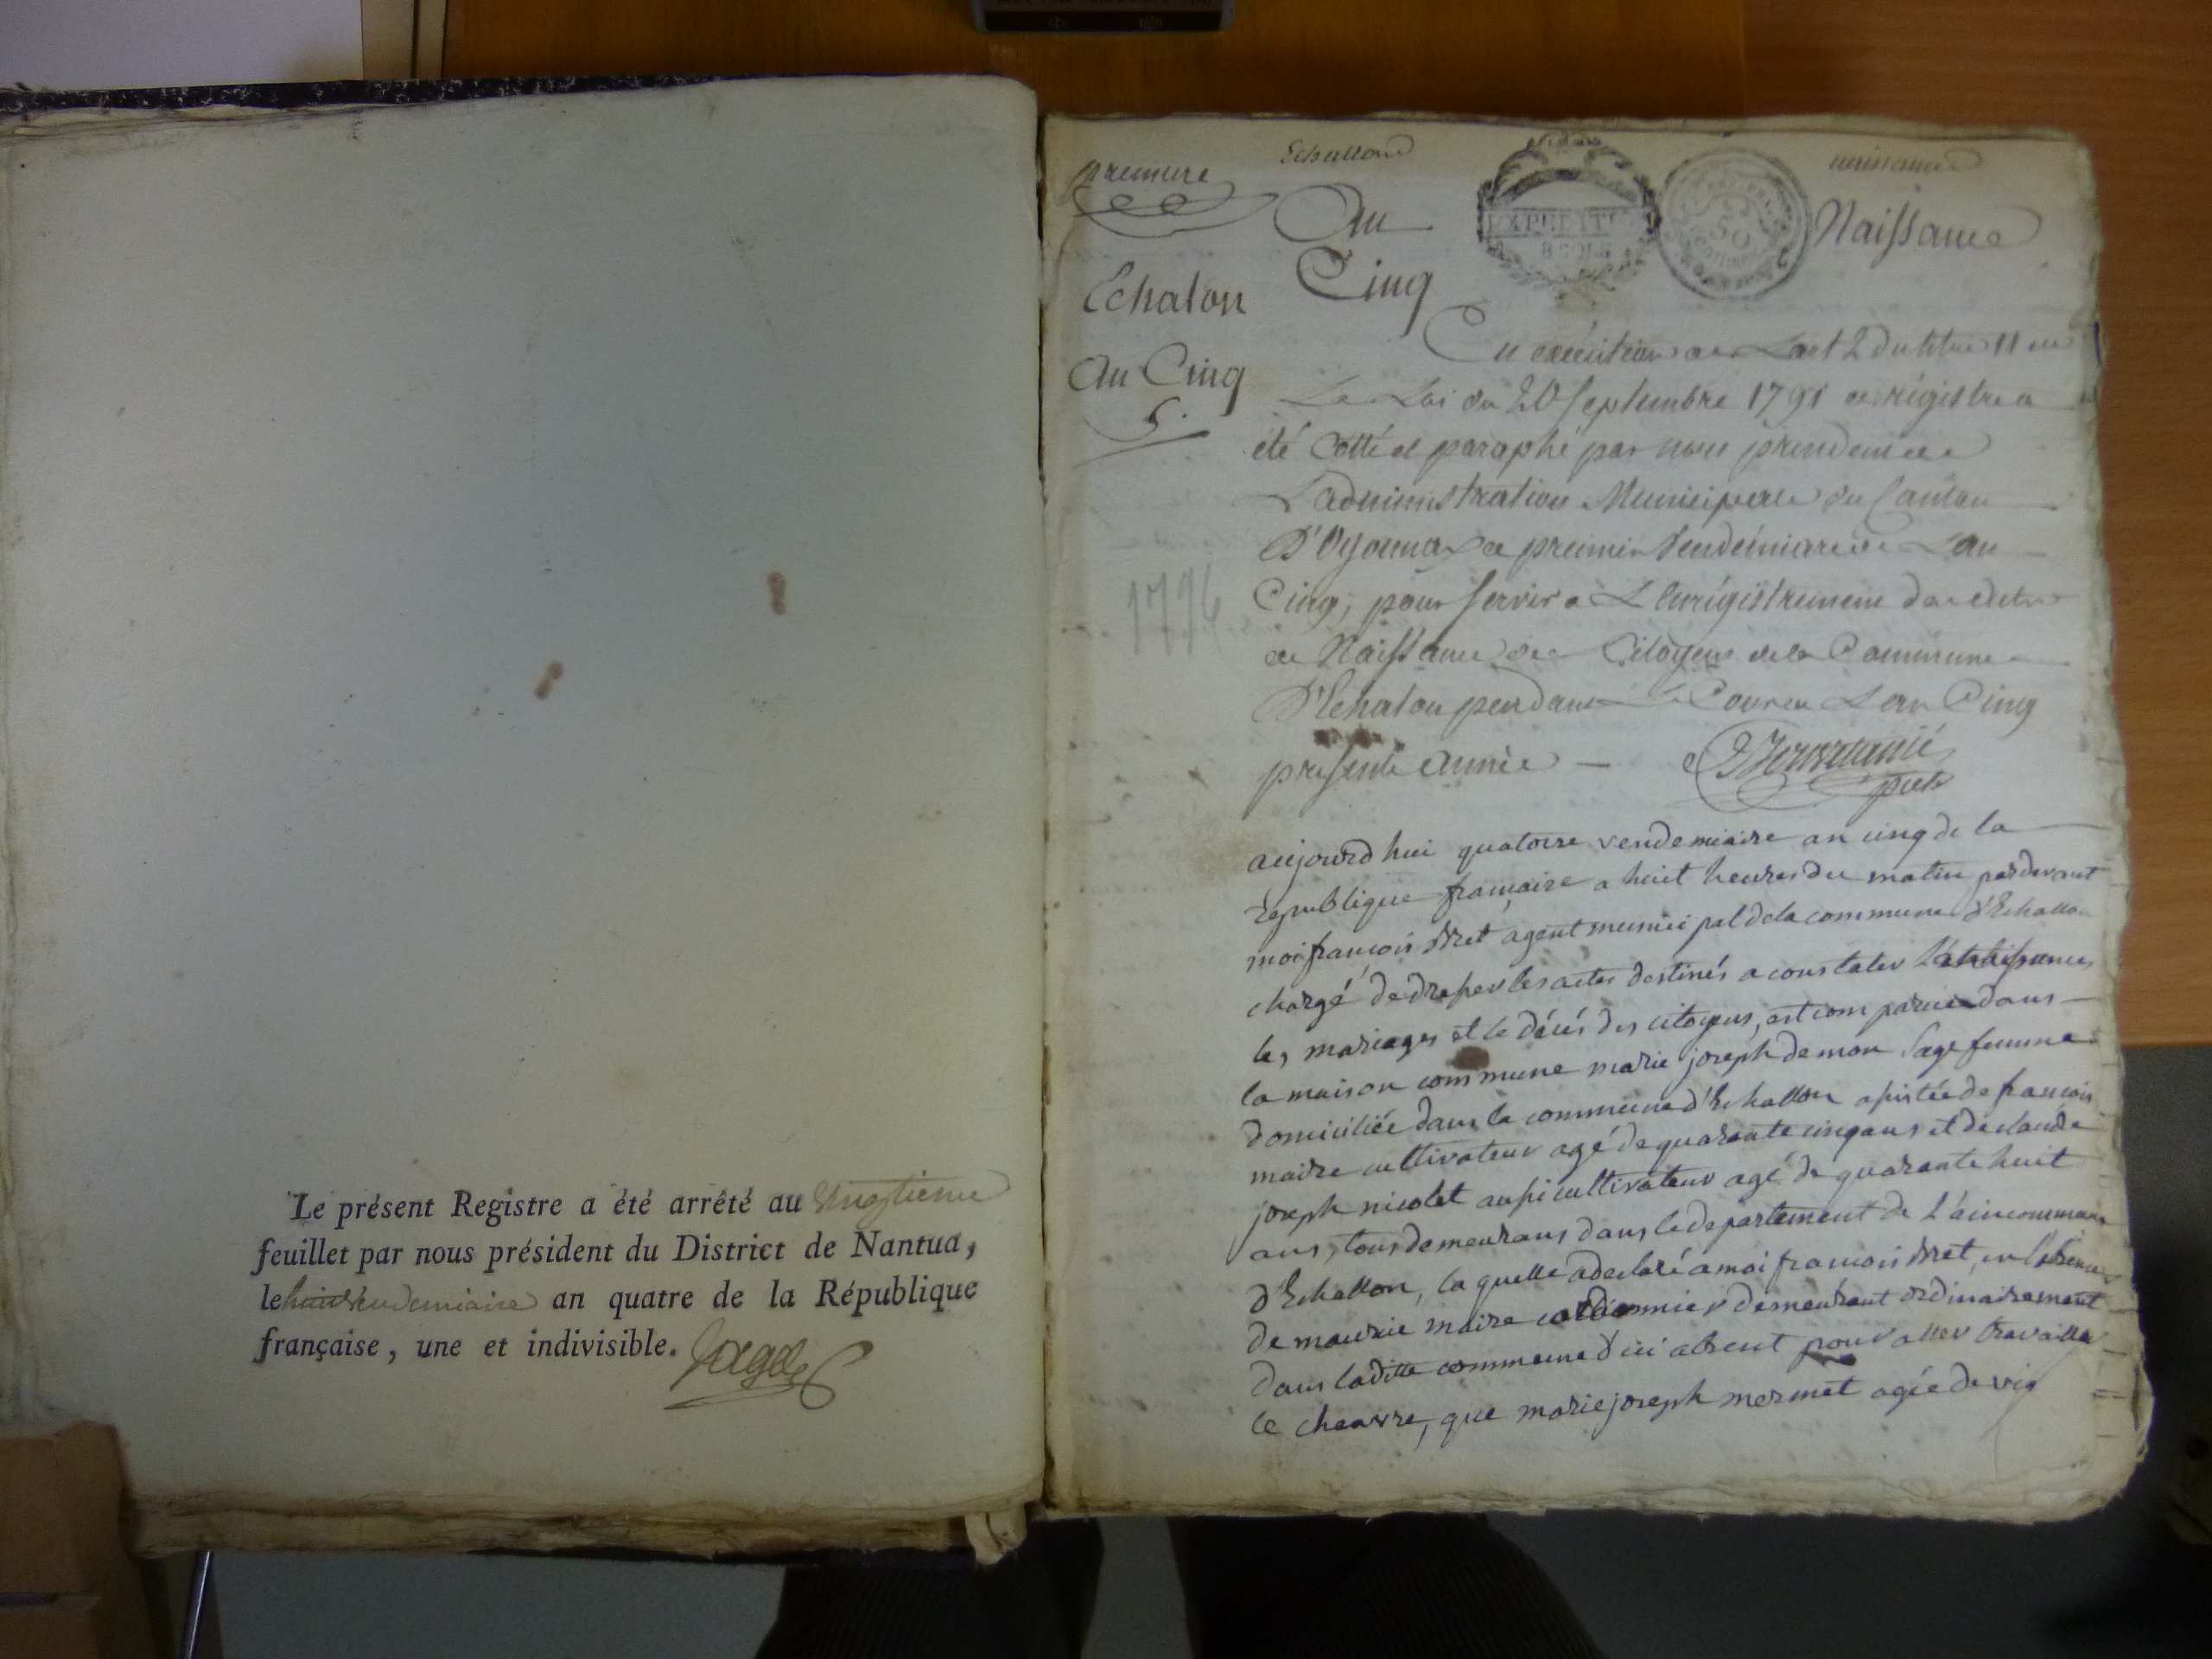 Le présent Registre a été arrêté au vingtieme
feuillet par nous président du District de Nantua,
le vendemiaire an quatre de la République
française, une et indivisible.
premiere
Echallon
naissance
An
Naissance
Echalon
Cinq
An Cinq
5.
En exécution de L'art 2 du titre 11 de
La Loi du 20 Septembre 1791 ce régistre a
été Cotté et paraphé par nous president de
L'administration Municipale du Canton
D'Oyonnax ce premier Vendémiaire de L'an
Cinq, pour servir a L'enrégistrement des actes
1796
de Naissance des Citoyens de la Commune
D'Echalon pendant le Cours de L'an Cinq
présente année
aujourd hui quatorze vendemiaire an cinq de la
republique française a huit heures du matin pardevant
moi françois agent municipal de la commune d'Echallon
chargé de dresser les actes destinés a constater
les mariages et le décés des citoyens, est comparue dans
la maison commune marie joseph demon sage femme
domiciliée dans la commune d'Echallon assistée de françois
maire cultivateur agé de quarante cinq ans et de claude
joseph nicolet aussi cultivateur agé de quarante huit
ans, tous demeurans dans le departement de L'ain commune
d'Echallon, la quelle a declaré a moi françois en l'absence
de maurie maire demeurant ordinairement
dans laditte commune d'ici absent pour aller travailler
le chanvre, que marie joseph mermet agée de